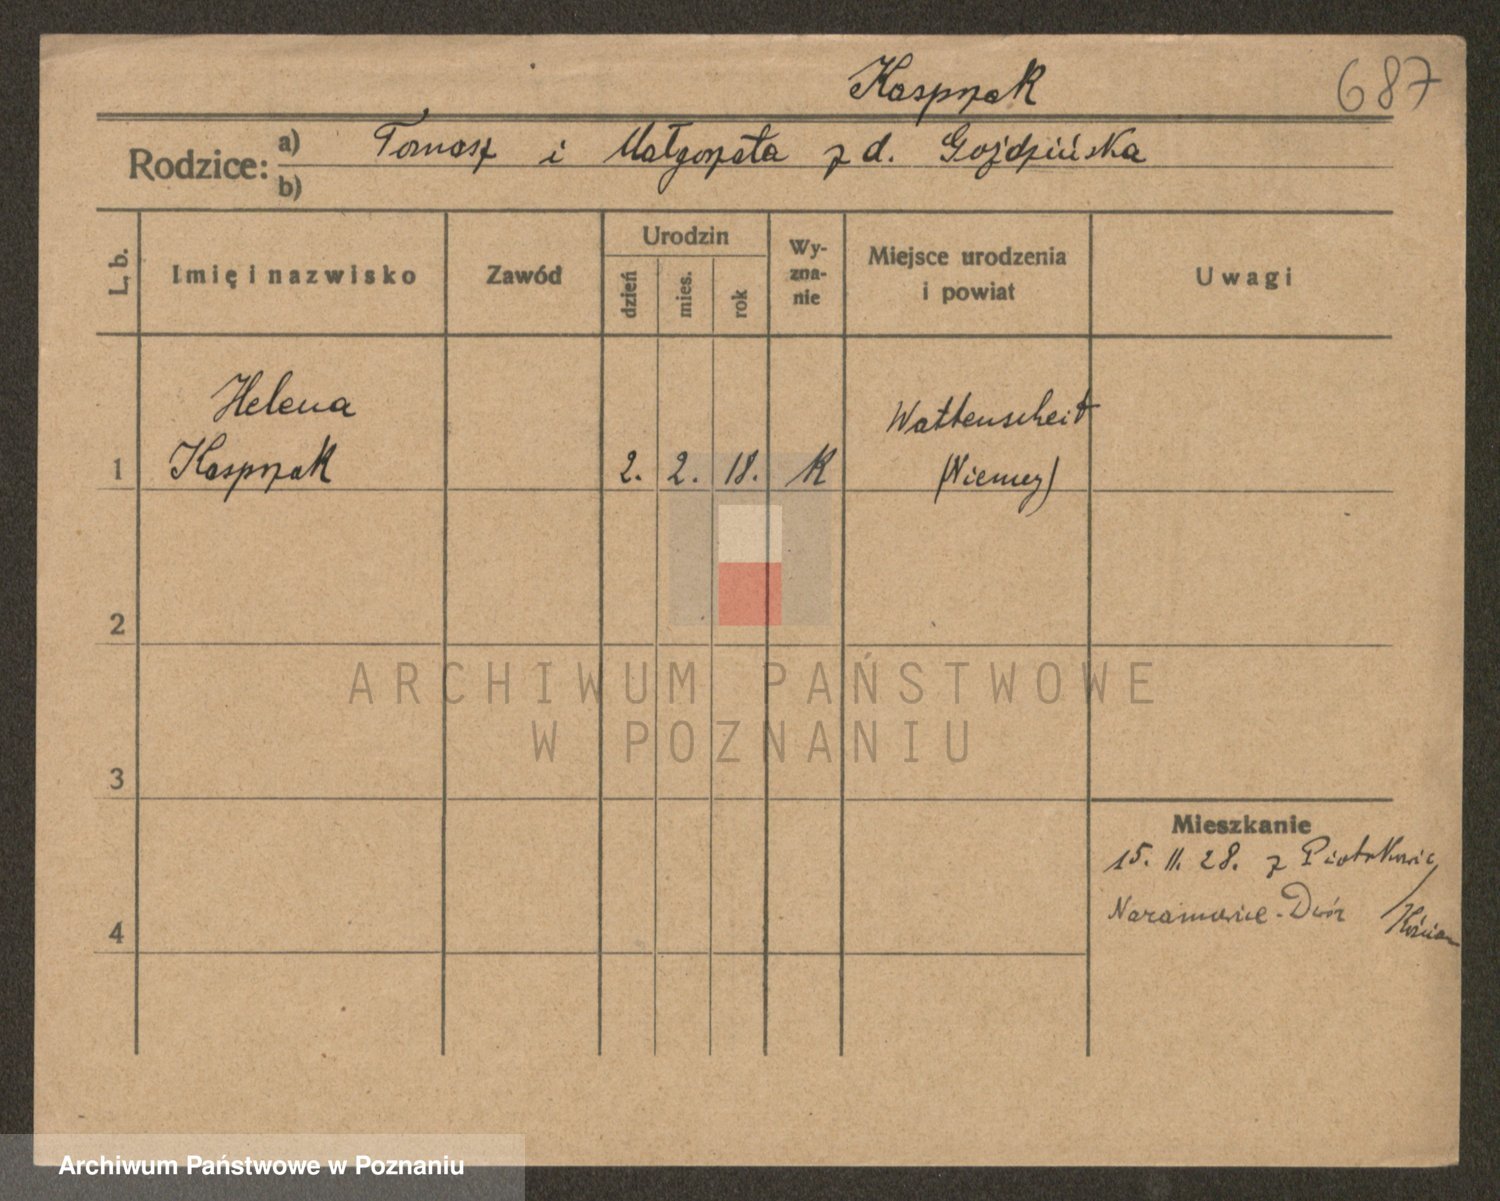 687
Kasprzak
Rodzice:
a) Tomasz i Małgorzata z d. Gojdzińska
b)
L. b.
Imię i nazwisko
Zawód
Urodzin
dzień
mies.
rok
Wy-
zna-
nie
Miejsce urodzenia
i powiat
Uwagi
Helena
Wattenscheit
1 Kasprzak 2. 2. 18. K (Niemcy)
2
ARCHIWUM PAŃSTWOWE
W POZNANIU
3
Mieszkanie
15. 11. 28. z Piotrkowic
Naramowice - Dwór / Kościan
4
Archiwum Państwowe w Poznaniu